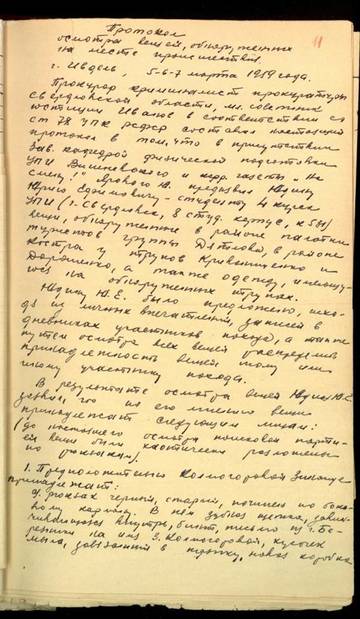 11
Протокол
осмотра вещей, обнаруженных
на месте происшествия.
г. Ивдель, 5-6-7 марта 1959 года.
Прокурор криминалист прокуратуры
Свердловской области, мл. советник
юстиции Иванов в соответствии со
ст 78 УПК РСФСР составил настоящий
протокол в том, что в присутствии
Зав. кафедрой физической подготовки
УПИ Вишневского и корр. газеты "На
смену!" Ярового Ю. предъявил Юдину
Юрию Ефимовичу - студенту 4 курса
УПИ (г. Свердловск, 8 студ. корпус, к 531)
вещи, обнаруженные в районе палатки
туристов группы Дятлова, в районе
костра у трупов Кривонищенко и
Дорошенко, а также одежду, имеющу-
юся на обнаруженных трупах.
Юдину Ю.Е. было предложено, исхо-
дя из личных впечатлений, записей в
дневниках участников похода, а также
путем осмотра всех вещей распределить
принадлежность вещей тому или
иному участнику похода.
В результате осмотра вещей Юдин Ю.Е.
заявил, что по его мнению вещи
принадлежат следующим лицам:
(до настоящего осмотра поисковой парти-
ей вещи были хаотически разложены
по рюкзакам).
1. Предположительно Колмогоровой Зинаиде
принадлежат:
рюкзак черный, старый, починен по боко-
вому карману. В нем зубная щетка,
внутрь, бинт, письмо из г. Бе-
резники на имя З. Колмогоровой, кусочек
мыла, завязанный в тряпку, новая коробка